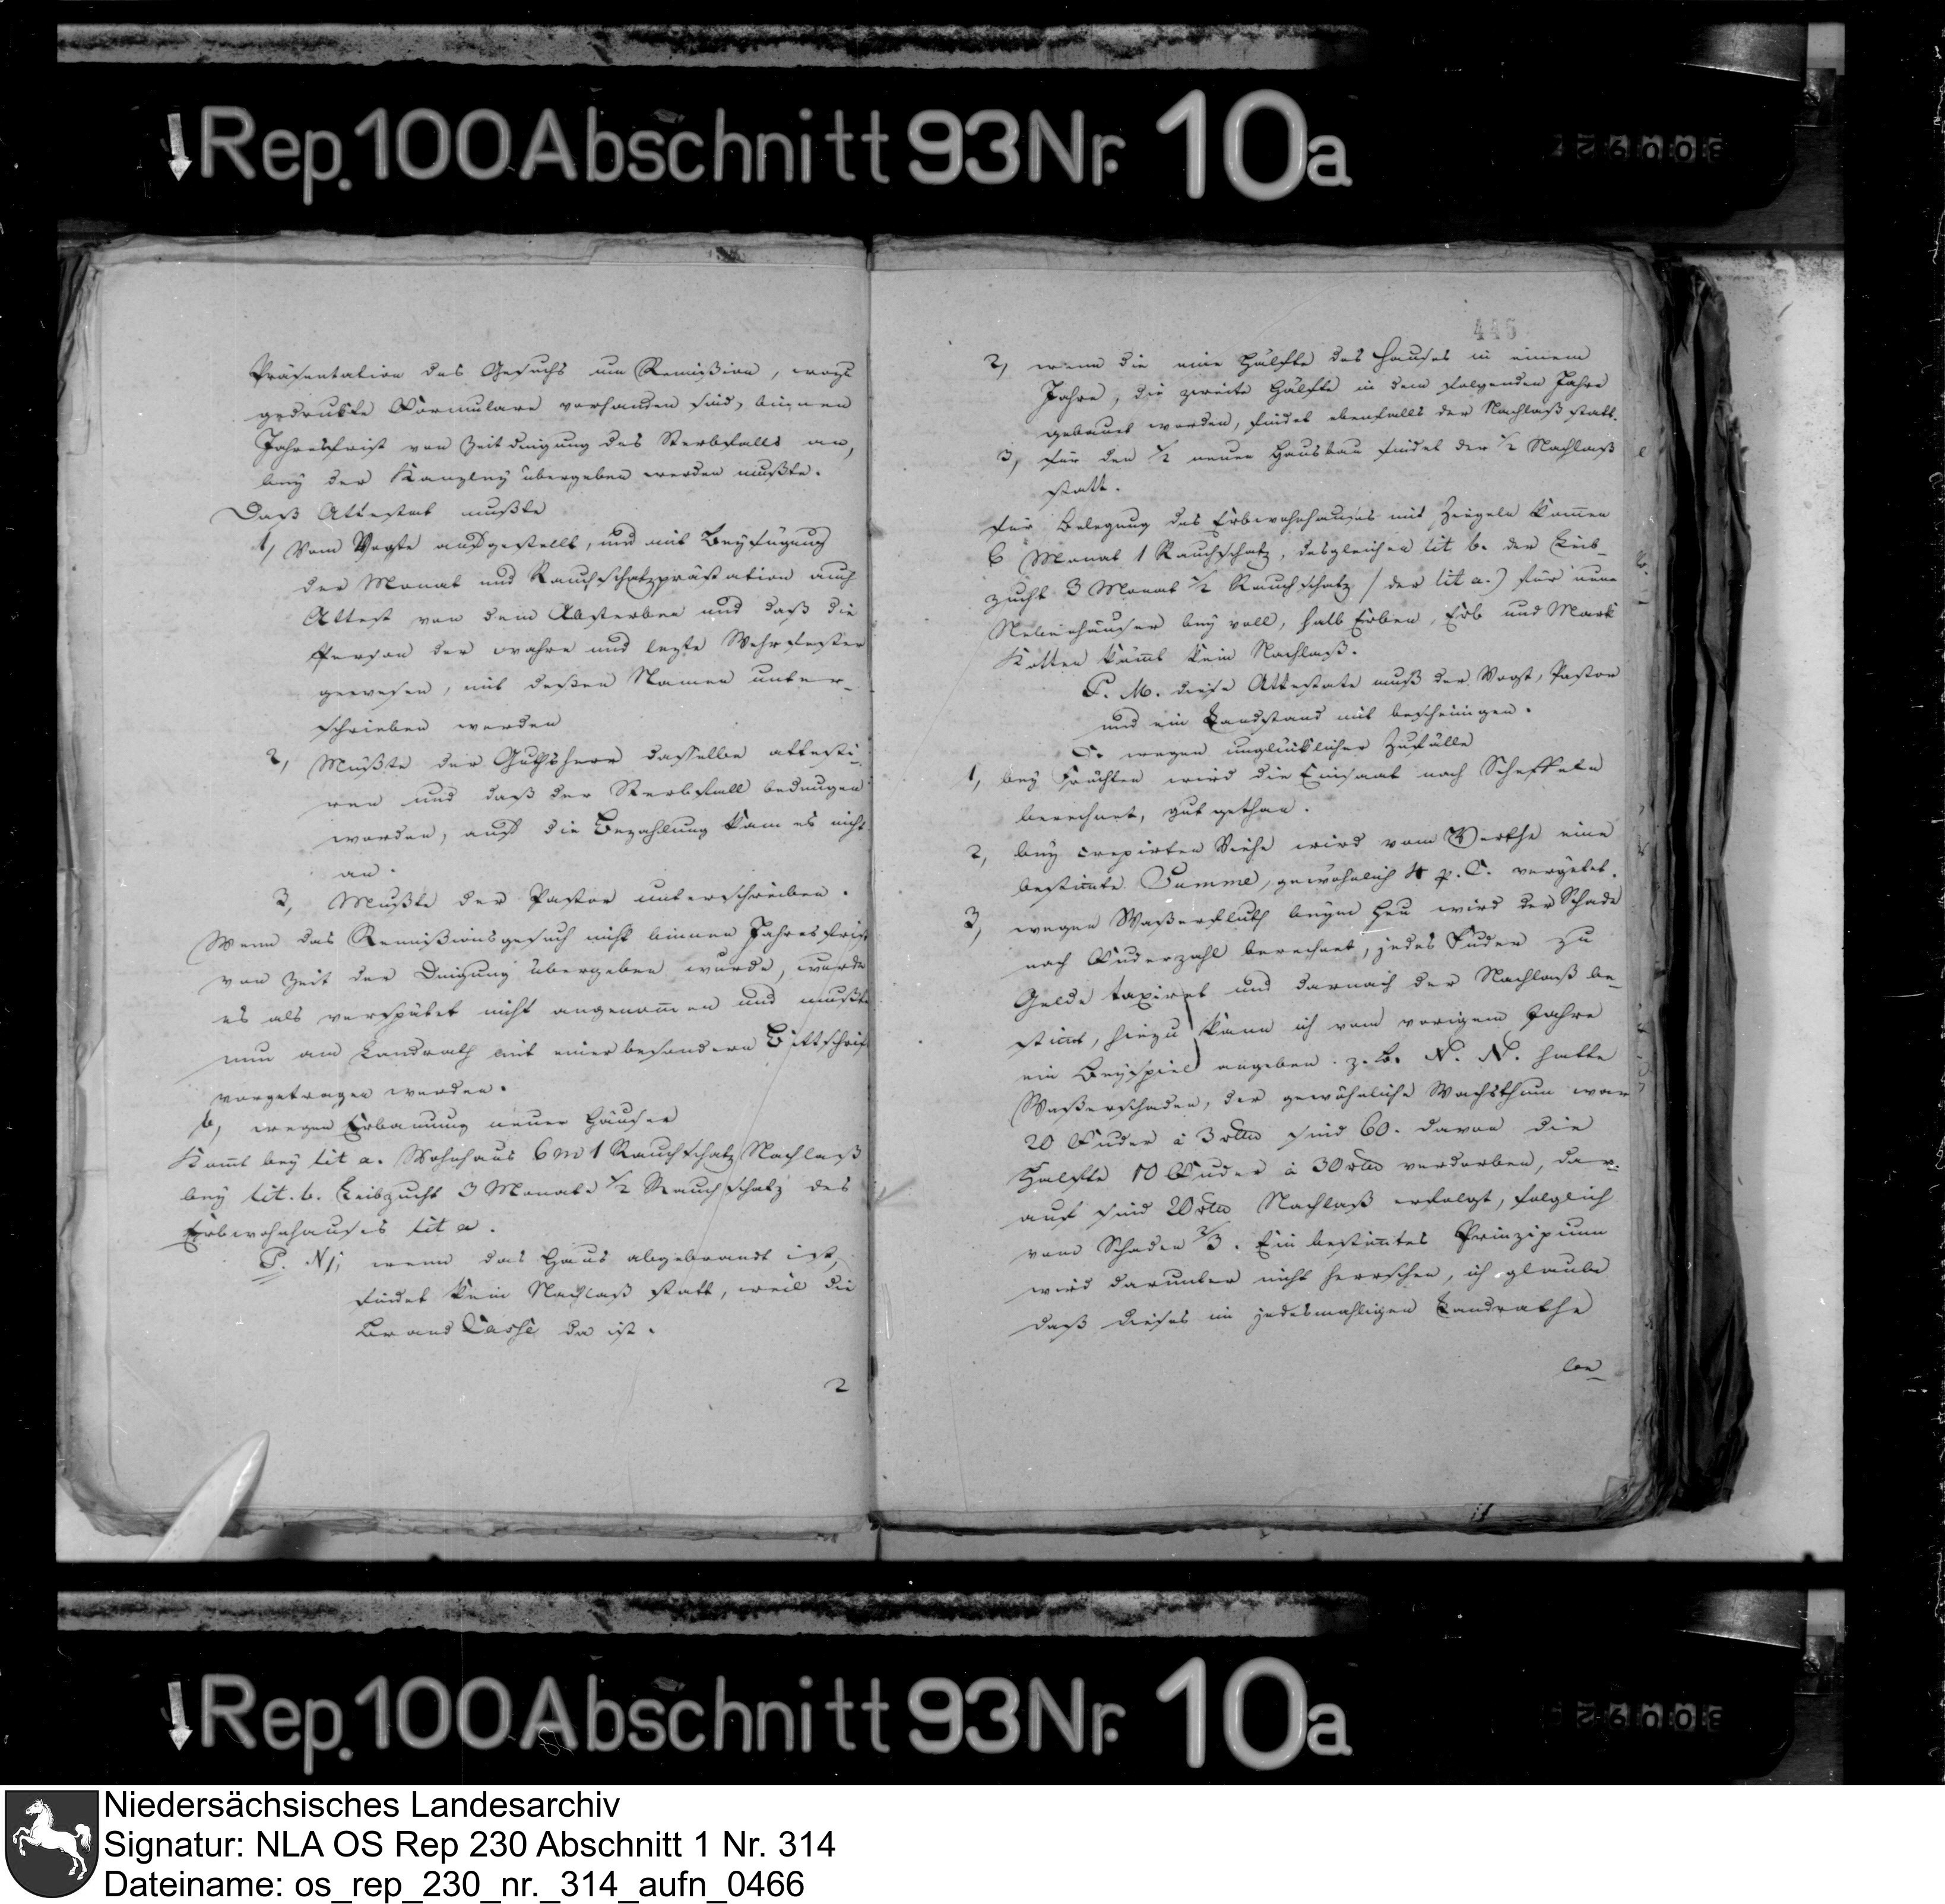 Rep. 100 Abschnitt 93 Nr. 10a
Präsentation des Gesuchs um Remißion, wozu
gedrukte Formulare vorhanden sind, binnen
Jahresfrist von Zeit dingung des Sterbfalls an,
bey der Kanzley übergeben werden mußte.
Daß Attestat mußte
1, Vom Vogte ausgestellt, und mit Beyfügung
der Monat und Rauchschatzpräsation auch
Attest von dem Absterben und daß die
Person der wahre und lezte Wehrfester
gewesen, mit deßen Namen unter-
schrieben werden
2, Mußte der Guthsherr dasselbe attesti-
ren und daß der Sterbfall bedungen
worden, auf die Bezahlung kam es nicht
an.
3, Mußte der Pastor unterschreiben.
Wenn das Remißionsgesuch nicht binnen Jahresfrist
von Zeit der Dingung übergeben wurde, wurde
es als verspätet nicht angenommen und mußte
nun am Landrath mit einer besondern Bittschrift
vorgetragen werden.
b, wegen Erbauung neuer Häuser
Komt bey lit a. Wohnhaus 6 m 1 Rauchschatz Nachlaß
bey lit. b. Leibzucht 3 Monat 1/2 Rauchschatz des
Erbwohnhauses lit a.
P. N; wenn das Haus abgebrandt ist,
findet kein Nachlaß statt, weil die
Brand Casse da ist.
2
446
2, wenn die eine Hälfte des Hauses in einem
Jahre, die zweite Hälfte in dem folgenden Jahre
gebauet worden, findet ebenfalls der Nachlaß statt.
3, für den 1/2 neuen Hausbau findet der 1/2 Nachlaß
statt.
für Belegung des Erbwohnhauses mit Ziegeln komen
6 Monat 1 Rauchschatz, desgleichen lit b. der Leib-
zucht 3 Monat 1/2 Rauchschatz / der lit a.) für neue
Nebenhäuser bey voll, halb Erben, Erb und Mark
Kotten kömt kein Nachlaß.
P. M. diese Attestate muß der Vogt, Pastor
und ein Landstand mit bescheinigen.
C. wegen unglücklicher Zufälle
1, bey Früchten wird die Einsaat nach Scheffeln
berechnet, gut gethan.
2, bey crepirten Viehe wird vom Werthe eine
bestimte Summe, gewöhnlich 4 p. C. vergütet.
3, wegen Waßerfluth beym Heu wird der Schade
nach Fuderzahl berechnet, jedes Fuder zu
Gelde taxiret und darnach der Nachlaß be-
stimt, hiezu kann ich vom vorigem Jahre
ein Beyspiel angeben. z. B. N. N. hatte
Waßerschaden, der gewöhnliche Wachsthum war
20 Fuder à 3 rtlr sind 60. davon die
Hälfte 10 Fuder à 30 rtlr verdorben, dar-
auf sind 20 rtlr Nachlaß erfolgt, folglich
vom Schaden 2/3. Ein bestimtes Prinzipium
wird darunter nicht herrschen, ich glaube
daß dieses im jedesmahligen Landrathe
Rep. 100 Abschnitt 93 Nr. 10a
Niedersächsisches Landesarchiv
Signatur: NLA OS Rep 230 Abschnitt 1 Nr. 314
Dateiname: os_rep_230_nr._314_aufn_0466